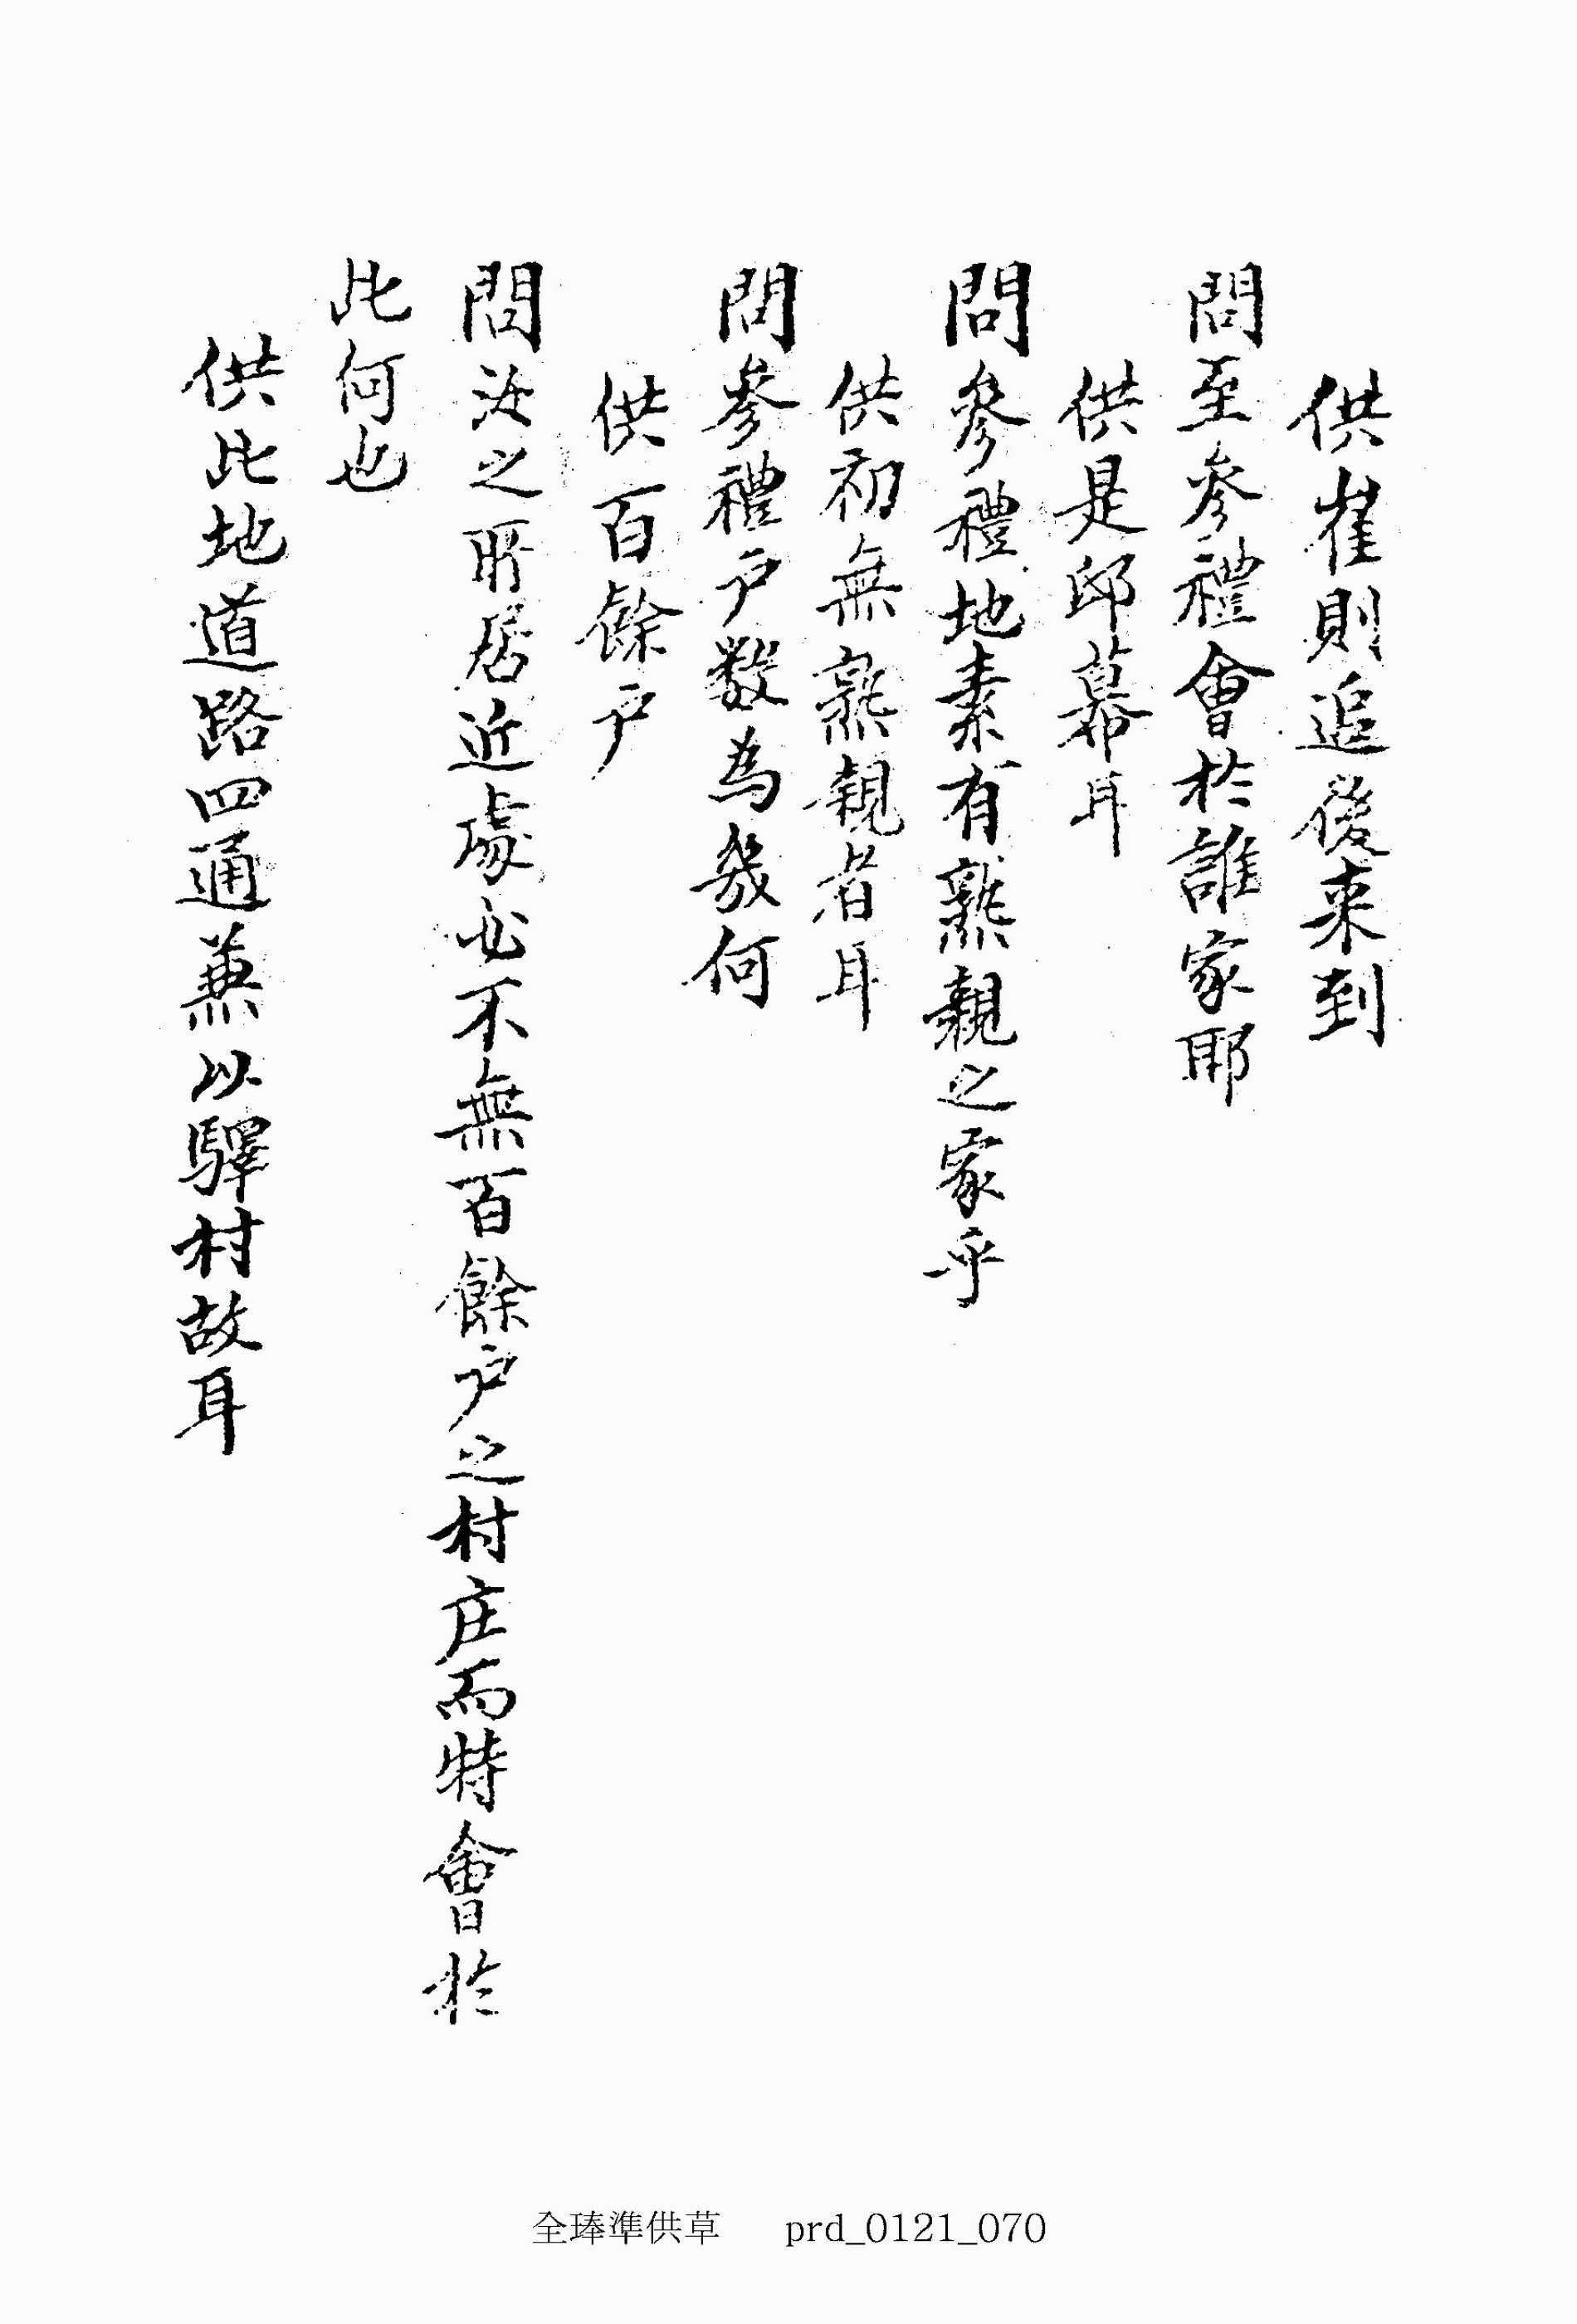 供崔則追後来到
問至参禮會於誰家耶
供是邸幕耳
問参禮地素有熟親之家乎
供初無熟親者耳
問参禮戶数為幾何
供百餘戶
問汝之所居近處必不無百餘戶之村庄而特會於
此何也
供此地道路四通兼以驛村故耳
全琫準供草 prd_0121_070